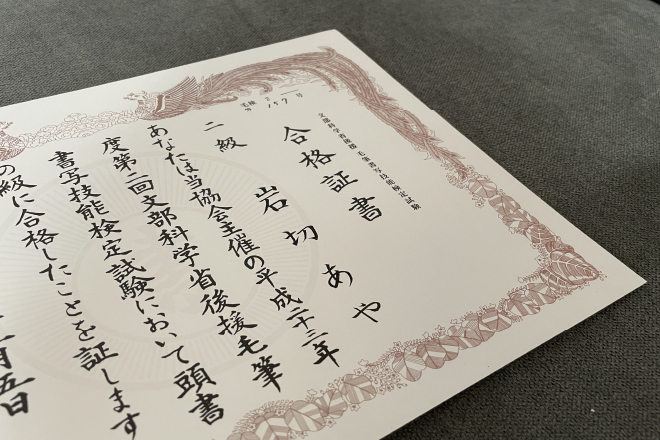 文部科学省後援 毛筆書写技能検定試験
合格証書
二級
岩切あや
あなたは当協会主催の平成二十三年
度第二回文部科学省後援毛筆
書写技能検定試験において頭書
の級に合格したことを証します
月五日